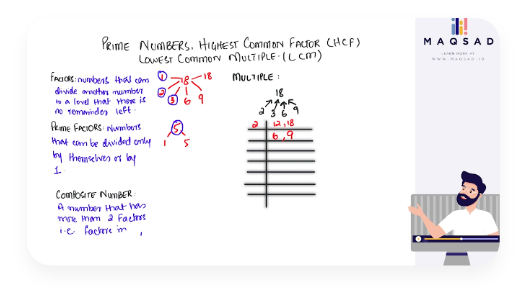 PRIME NUMBERS, HIGHEST COMMON FACTOR (HCF)
LOWEST COMMON MULTIPLE (LCM)
FACTORS: numbers that can
divide another number
to a level that there is
no remainder left.
1 18 18
2 3 6 9
PRIME FACTORS: Numbers
that can be divided only
by themselves or by
1.
5
1 5
COMPOSITE NUMBER:
A number that has
more than 2 factors
i.e. factors in
MULTIPLE:
18
2 3 6 9
2 12, 18
6, 9
MAQSAD
LEARN MORE AT
WWW.MAQSAD.IO